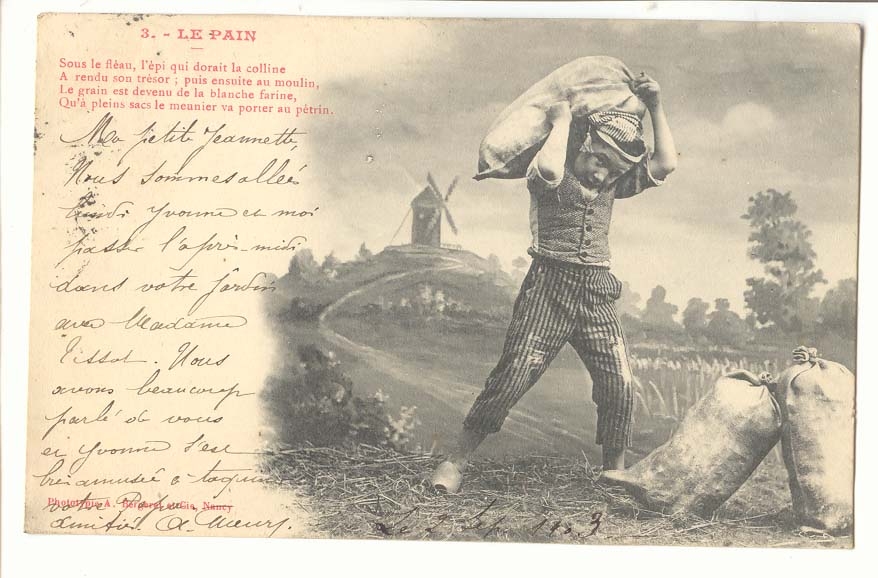 3. - LE PAIN
Sous le fléau, l'épi qui dorait la colline
A rendu son trésor ; puis ensuite au moulin,
Le grain est devenu de la blanche farine,
Qu'à pleins sacs le meunier va porter au pétrin.
Ma petite Jeannette,
Nous sommes allées
lundi Yvonne et moi
passer l'après-midi
dans votre jardin
avec Madame
Tissot. Nous
avons beaucoup
parlé de vous
et Yvonne s'est
bien amusée à taquiner
Phototypie A. Bergeret et Cie, Nancy
votre
amitiés
Le 2 Sep 1903